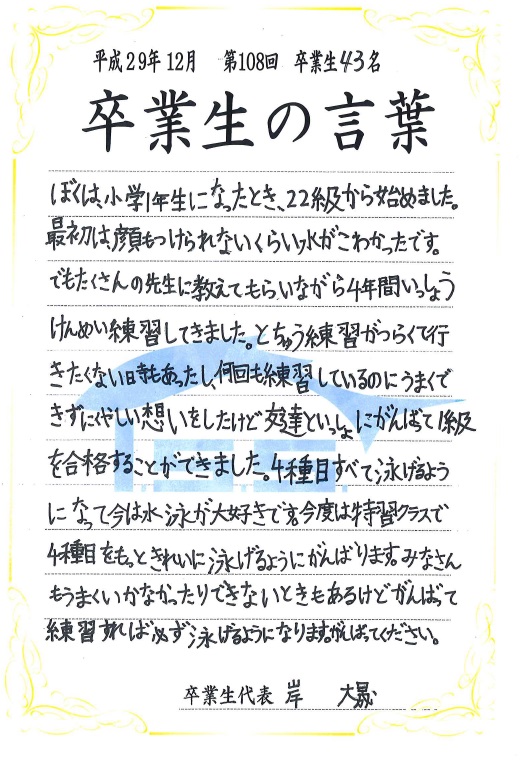 平成29年12月 第108回 卒業生43名
卒業生の言葉
ぼくは、小学1年生になったとき、22級から始めました。
最初は、顔もつけられないくらい水がこわかったです。
でもたくさんの先生に教えてもらいながら4年間いっしょう
けんめい練習してきました。とちゅう練習がつらくて行
きたくない時もあったし、何回も練習しているのにうまくで
きずにくやしい想いをしたけど友達といっしょにがんばって1級
を合格することができました。4種目すべて泳げるよう
になって今は水泳が大好きです。今度は特習クラスで
4種目をもっときれいに泳げるようにがんばります。みなさん
もうまくいかなかったりできないときもあるけどがんばって
練習すれば必ず泳げるようになります。がんばってください。
卒業生代表 岸 大晟